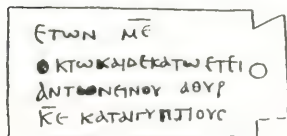 ΕΤωΝ Μ̅Ε̅
ΟΚΤωΚΑΙΔΕΚΑΤω ΕΤΕΙ
ΑΝΤωΝΕΙΝΟΥ ΑΘΥΡ
Κ̅Ε̅ ΚΑΤΑΙΓΥΠΤΙΟΥϹ